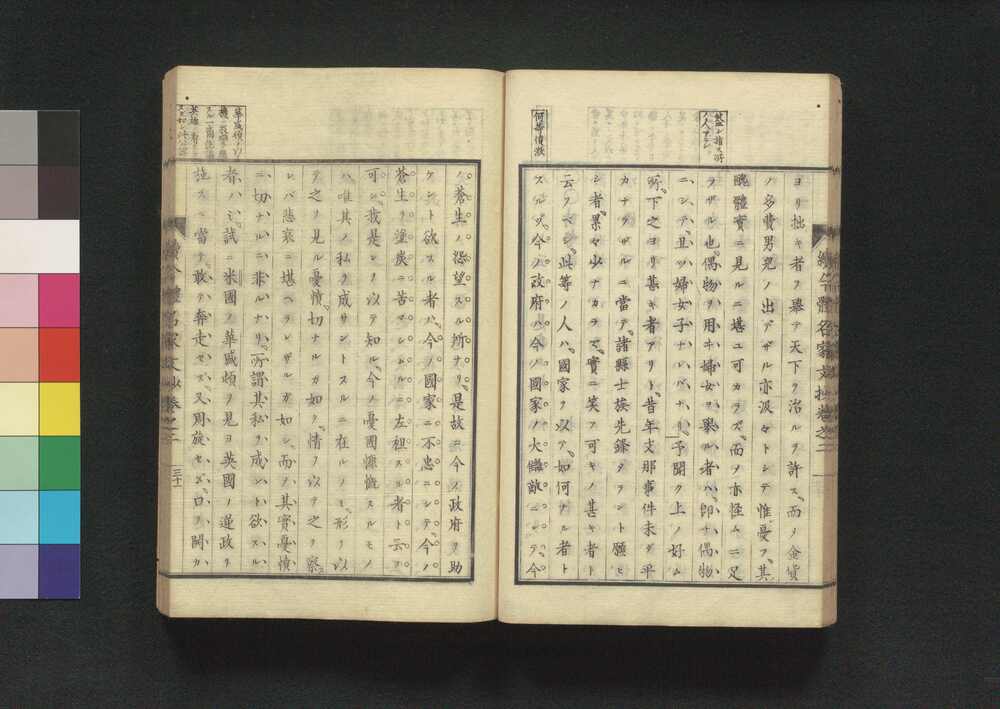 ヨリ拙キ者ヲ擧テ天下ヲ治ルヲ許ス而ノ金貨
ノ多費男兒ノ出デザル亦汲々トシテ惟憂フ其
醜體實ニ見ルニ堪ユ可カラズ而ノ亦怪ムニ足
ラザル也偶物ヲ用ヰ婦女ヲ擧ル者ハ卽ナ偶物
ニシテ其ツ婦女子ナレバナリ予聞ク上ノ好ム
所下之ヨリ甚キ者アリト昔年支那事件未ダ平
カナラザルニ當テ諸縣士族先鋒タラント願ヒ
シ者累々少ナカラズ實ニ笑フ可キノ甚キ者ト
云フベシ此等ノ人ハ國家ヲ以テ如何ナル者ト
スルヤ今ノ政府ハ今ノ國家ノ大讎敵ニシテ今
何等憤激
續今體名家文抄卷之二
ノ蒼生ノ怨望スル所ナリ是故ニ今ノ政府ヲ助
ケント欲スル者ハ今ノ國家ニ不忠ニシテ今ノ
蒼生ヲ塗炭ニ苦マシムルニ左袒スル者ト云フ
可シ我是レヲ以テ知ル今ノ憂國慷慨スルモノ
ハ唯其ノ私ヲ成サントスルニ在ルノミ形ヲ以
テ之ヲ見ル憂憤切ナルガ如ク情ヲ以テ之ヲ察
レバ悲哀ニ堪ヘラレザルガ如シ而ノ其實憂憤
ニ切ナルニ非ルナリ所謂其私ヲ成ント欲スル
者ハミ試ニ米國ノ華盛頓ヲ見ヨ英國ノ逆政ヲ
施スニ當テ敢テ奔走セズ又周旋セズ口ヲ開カ
續今體名家文抄卷之二
三十